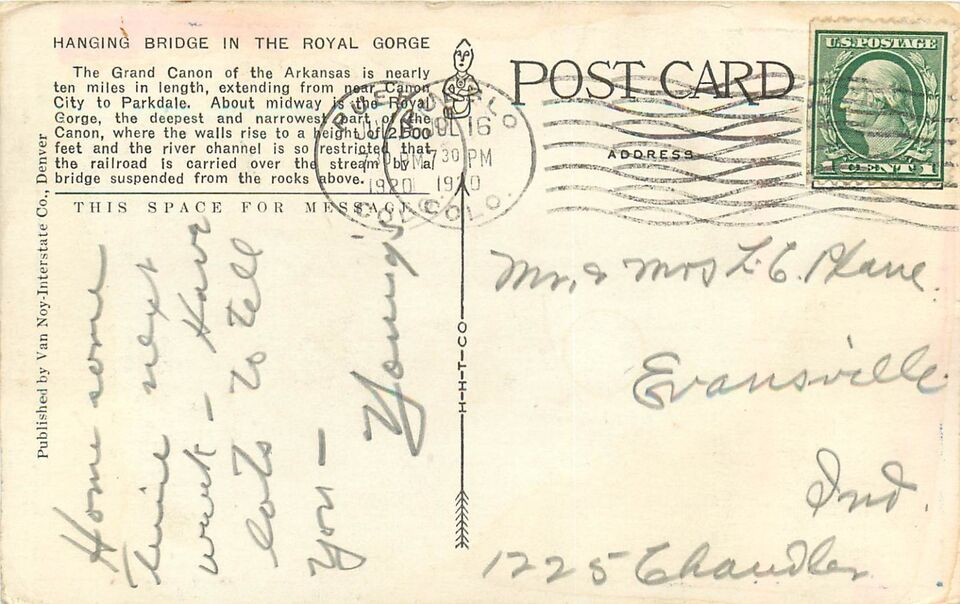 HANGING BRIDGE IN THE ROYAL GORGE
The Grand Canon of the Arkansas is nearly
ten miles in length, extending from near Canon
City to Parkdale. About midway is the Royal
Gorge, the deepest and narrowest part of the
Canon, where the walls rise to a height of 2,600
feet and the river channel is so restricted that
the railroad is carried over the stream by a
bridge suspended from the rocks above.
THIS SPACE FOR MESSAGE
Published by Van Noy-Interstate Co., Denver
Home some
Time next
week - Have
Lots to tell
you -
Young's
H-H-T-CO
POST CARD
ADDRESS
PUEBLO
JUL 16
7 30 PM
1920
COLO.
U.S. POSTAGE
1 CENT 1
Mr. & Mrs L. C.
Evansville
Ind.
1225 Chandler